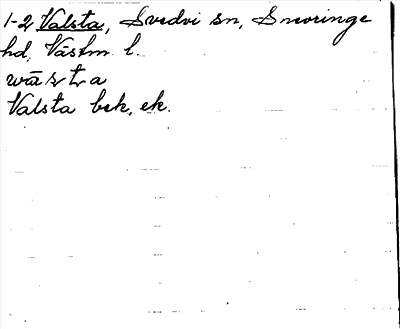 1-2 Valsta, Svedvi sn, Snevringe
hd, Västm. l.
Valsta bek. ek.